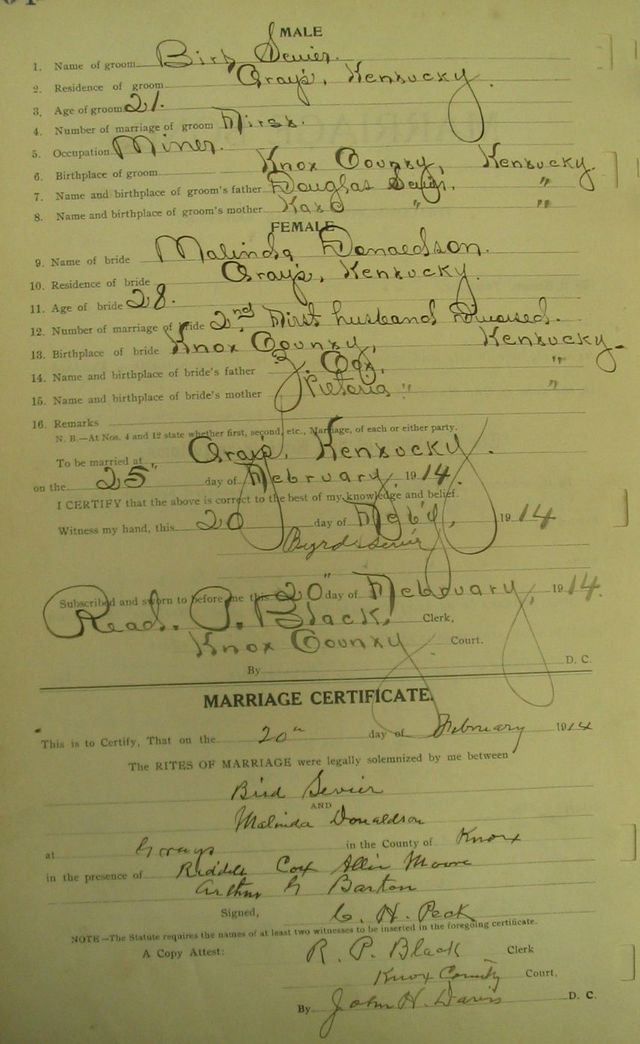 MALE
1. Name of groom Bird Sevier.
2. Residence of groom Grays, Kentucky.
3. Age of groom 21.
4. Number of marriage of groom First.
5. Occupation Miner.
6. Birthplace of groom Knox County, Kentucky.
7. Name and birthplace of groom's father Douglas Sevier. "
8. Name and birthplace of groom's mother Kate " "
FEMALE
9. Name of bride Malinda Donaldson.
10. Residence of bride Grays, Kentucky.
11. Age of bride 28.
12. Number of marriage of bride 2nd First husband Divorced.
13. Birthplace of bride Knox County, Kentucky
14. Name and birthplace of bride's father Cox, "
15. Name and birthplace of bride's mother Victoria " "
16. Remarks
N. B.—At Nos. 4 and 12 state whether first, second, etc., Marriage, of each or either party.
To be married at Grays, Kentucky.
on the 25" day of February, 1914.
I CERTIFY that the above is correct to the best of my knowledge and belief.
Witness my hand, this 20 day of Feb'y, 1914
Byrd Sevier
Subscribed and sworn to before me this 20" day of February, 1914.
Read. P. Black, Clerk,
Knox County Court.
By D. C.
MARRIAGE CERTIFICATE.
This is to Certify, That on the 20th day of February 1914
The RITES OF MARRIAGE were legally solemnized by me between
Bird Sevier
AND
Malinda Donaldson
at Grays in the County of Knox
in the presence of Riddle Cox Allin Moore
Arthur G Barton
Signed, C. H. Peck
NOTE—The Statute requires the names of at least two witnesses to be inserted in the foregoing certificate.
A Copy Attest: R. P. Black Clerk
Knox County Court,
By John H. Davis D. C.